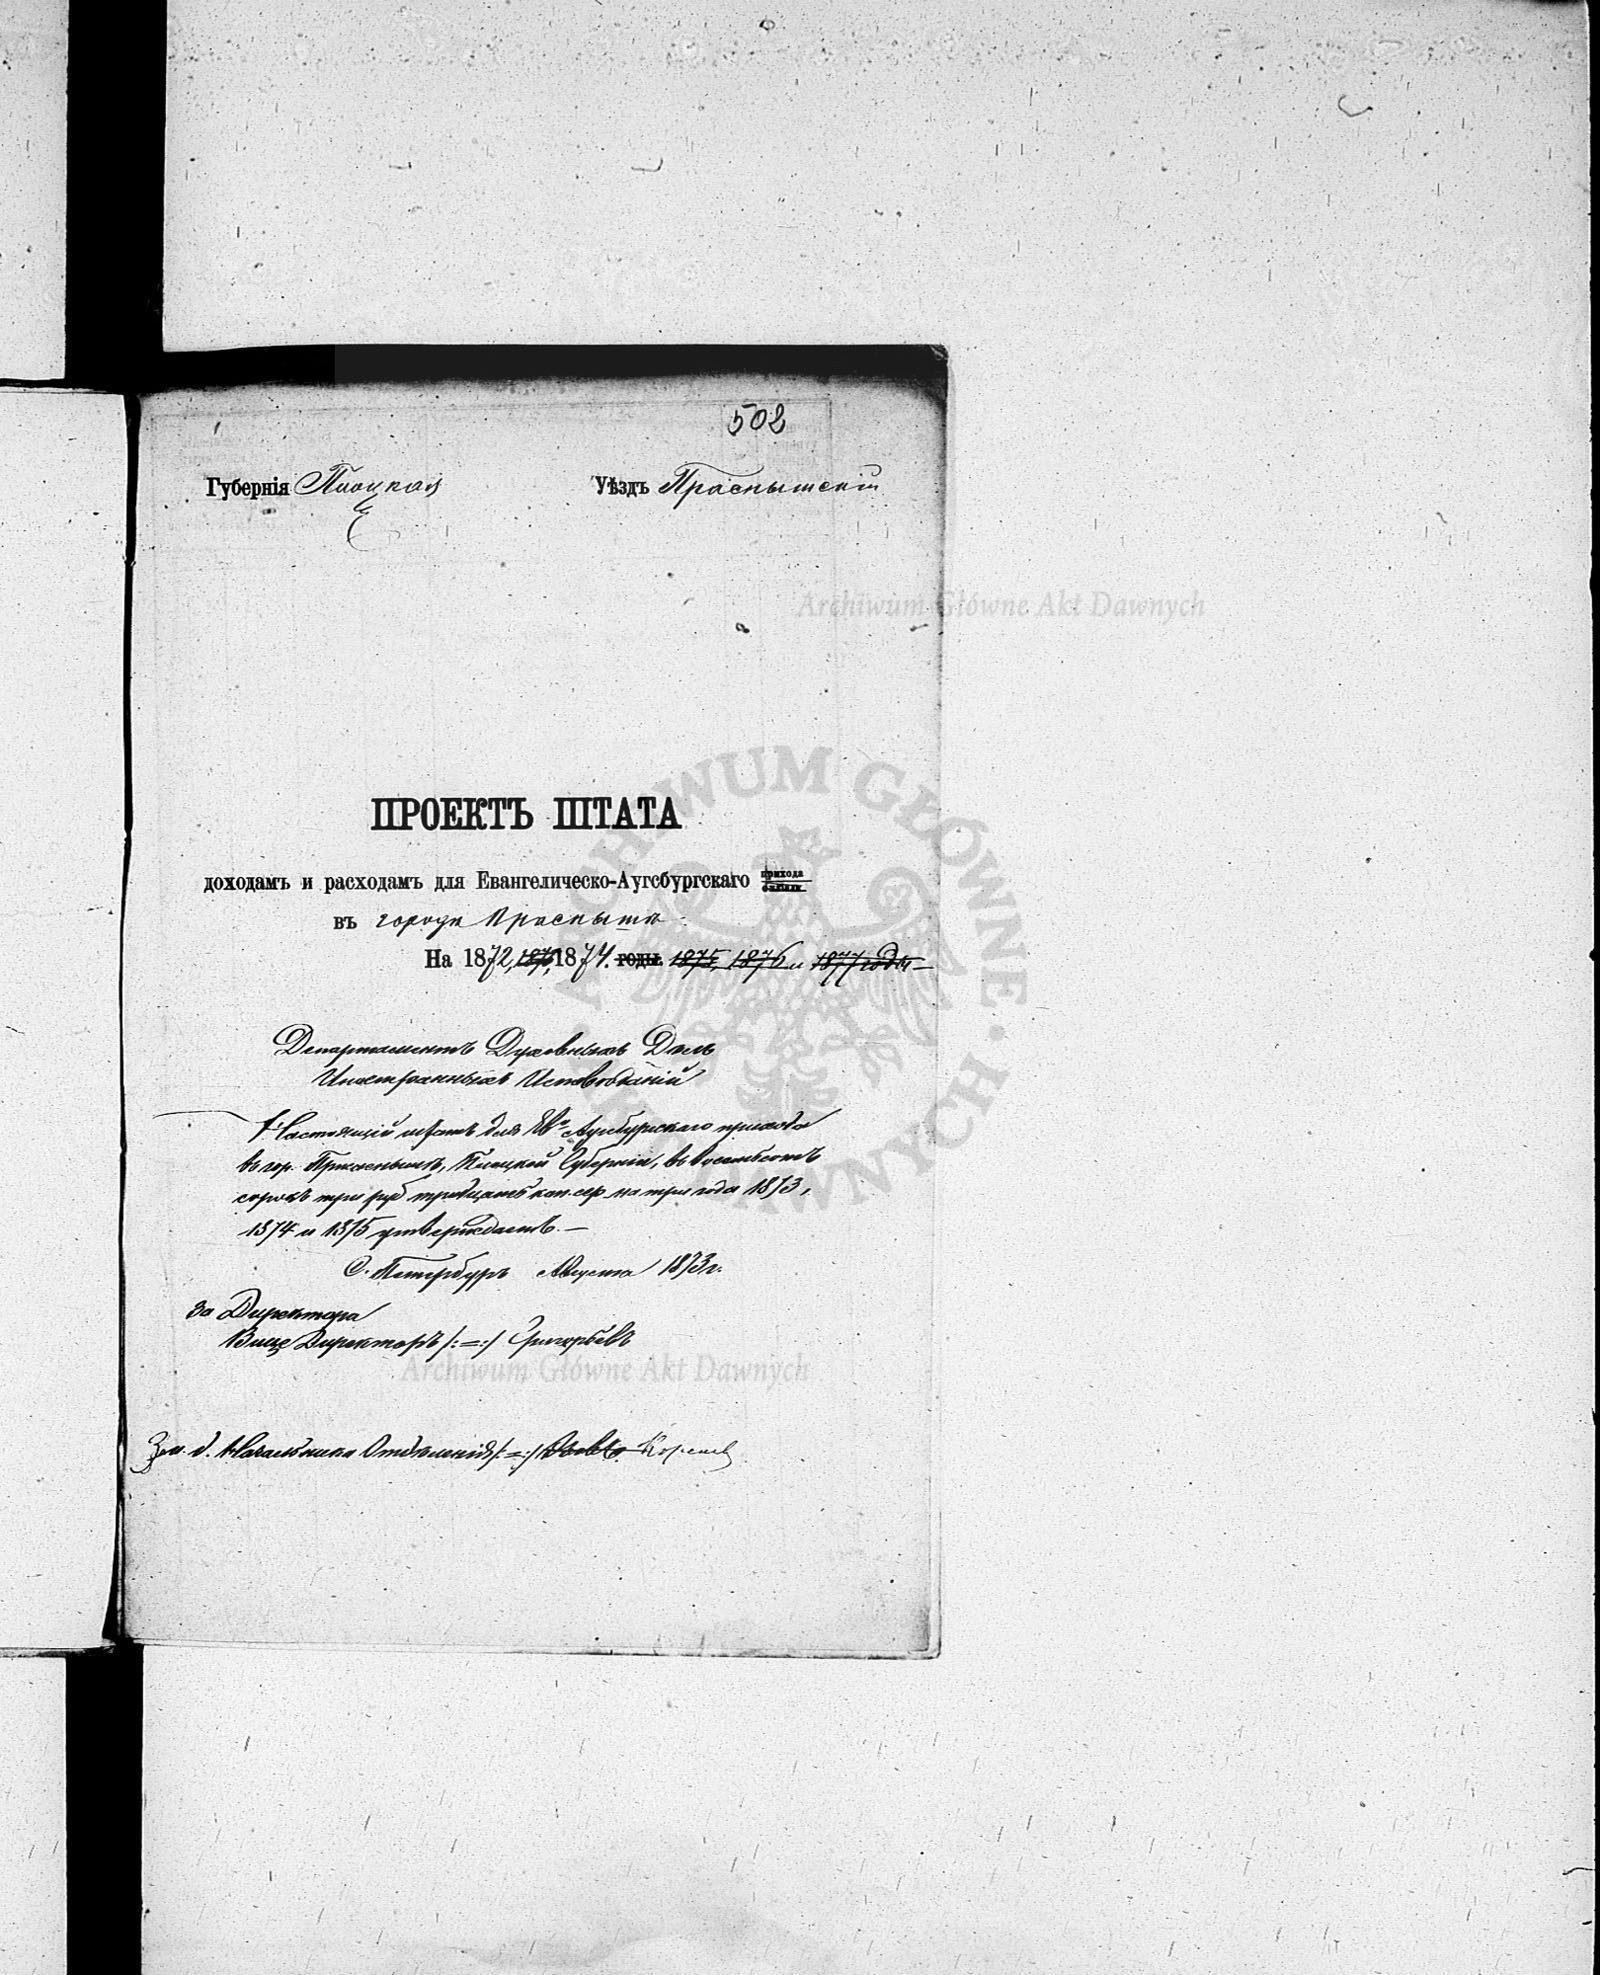 502
Губернія Плоцкая Уѣздъ Праснышскій
Archiwum Główne Akt Dawnych
ПРОЕКТЪ ШТАТА
доходамъ и расходамъ для Евангелическо-Аугсбургскаго прихода
въ городѣ Праснышѣ
На 1872, 1873, 1874. годы. 1875, 1876 и 1877 годы
Департаментъ Духовныхъ Дѣлъ
Иностранныхъ Исповѣданій
Настоящій штатъ для Ев. Аугсбургскаго прихода
въ гор. Праснышѣ, Плоцкой Губерніи, въ восемьсотъ
сорокъ три руб тридцать коп. сер. на три года 1873,
1874 и 1875 утверждаетъ. —
С. Петербургъ Августа 1873 г.
За Директора
Вице Директоръ /:=:/ Григорьевъ
Archiwum Główne Akt Dawnych
д. Начальника Отдѣленія /:=:/
ARCHIWUM GŁÓWNE AKT DAWNYCH